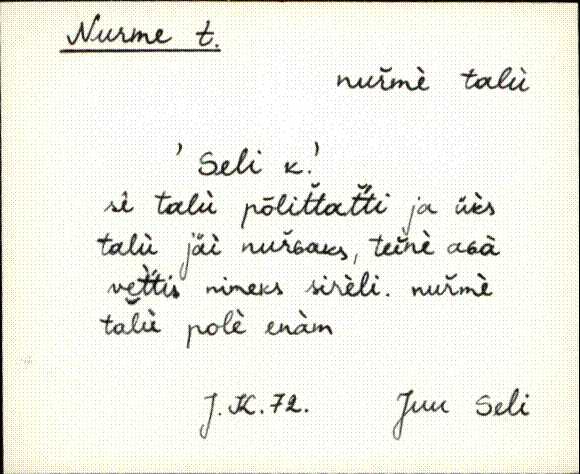 Nurme t.
nuřmè talù
' Seli k.'
sê talù pōliťtaťti ja ük̀s
talù jäì nuřʙaks, teiňè aʙà
veťtis nimeks sirèli. nuřmè
talù polè enàm
J.K.72. Juu Seli